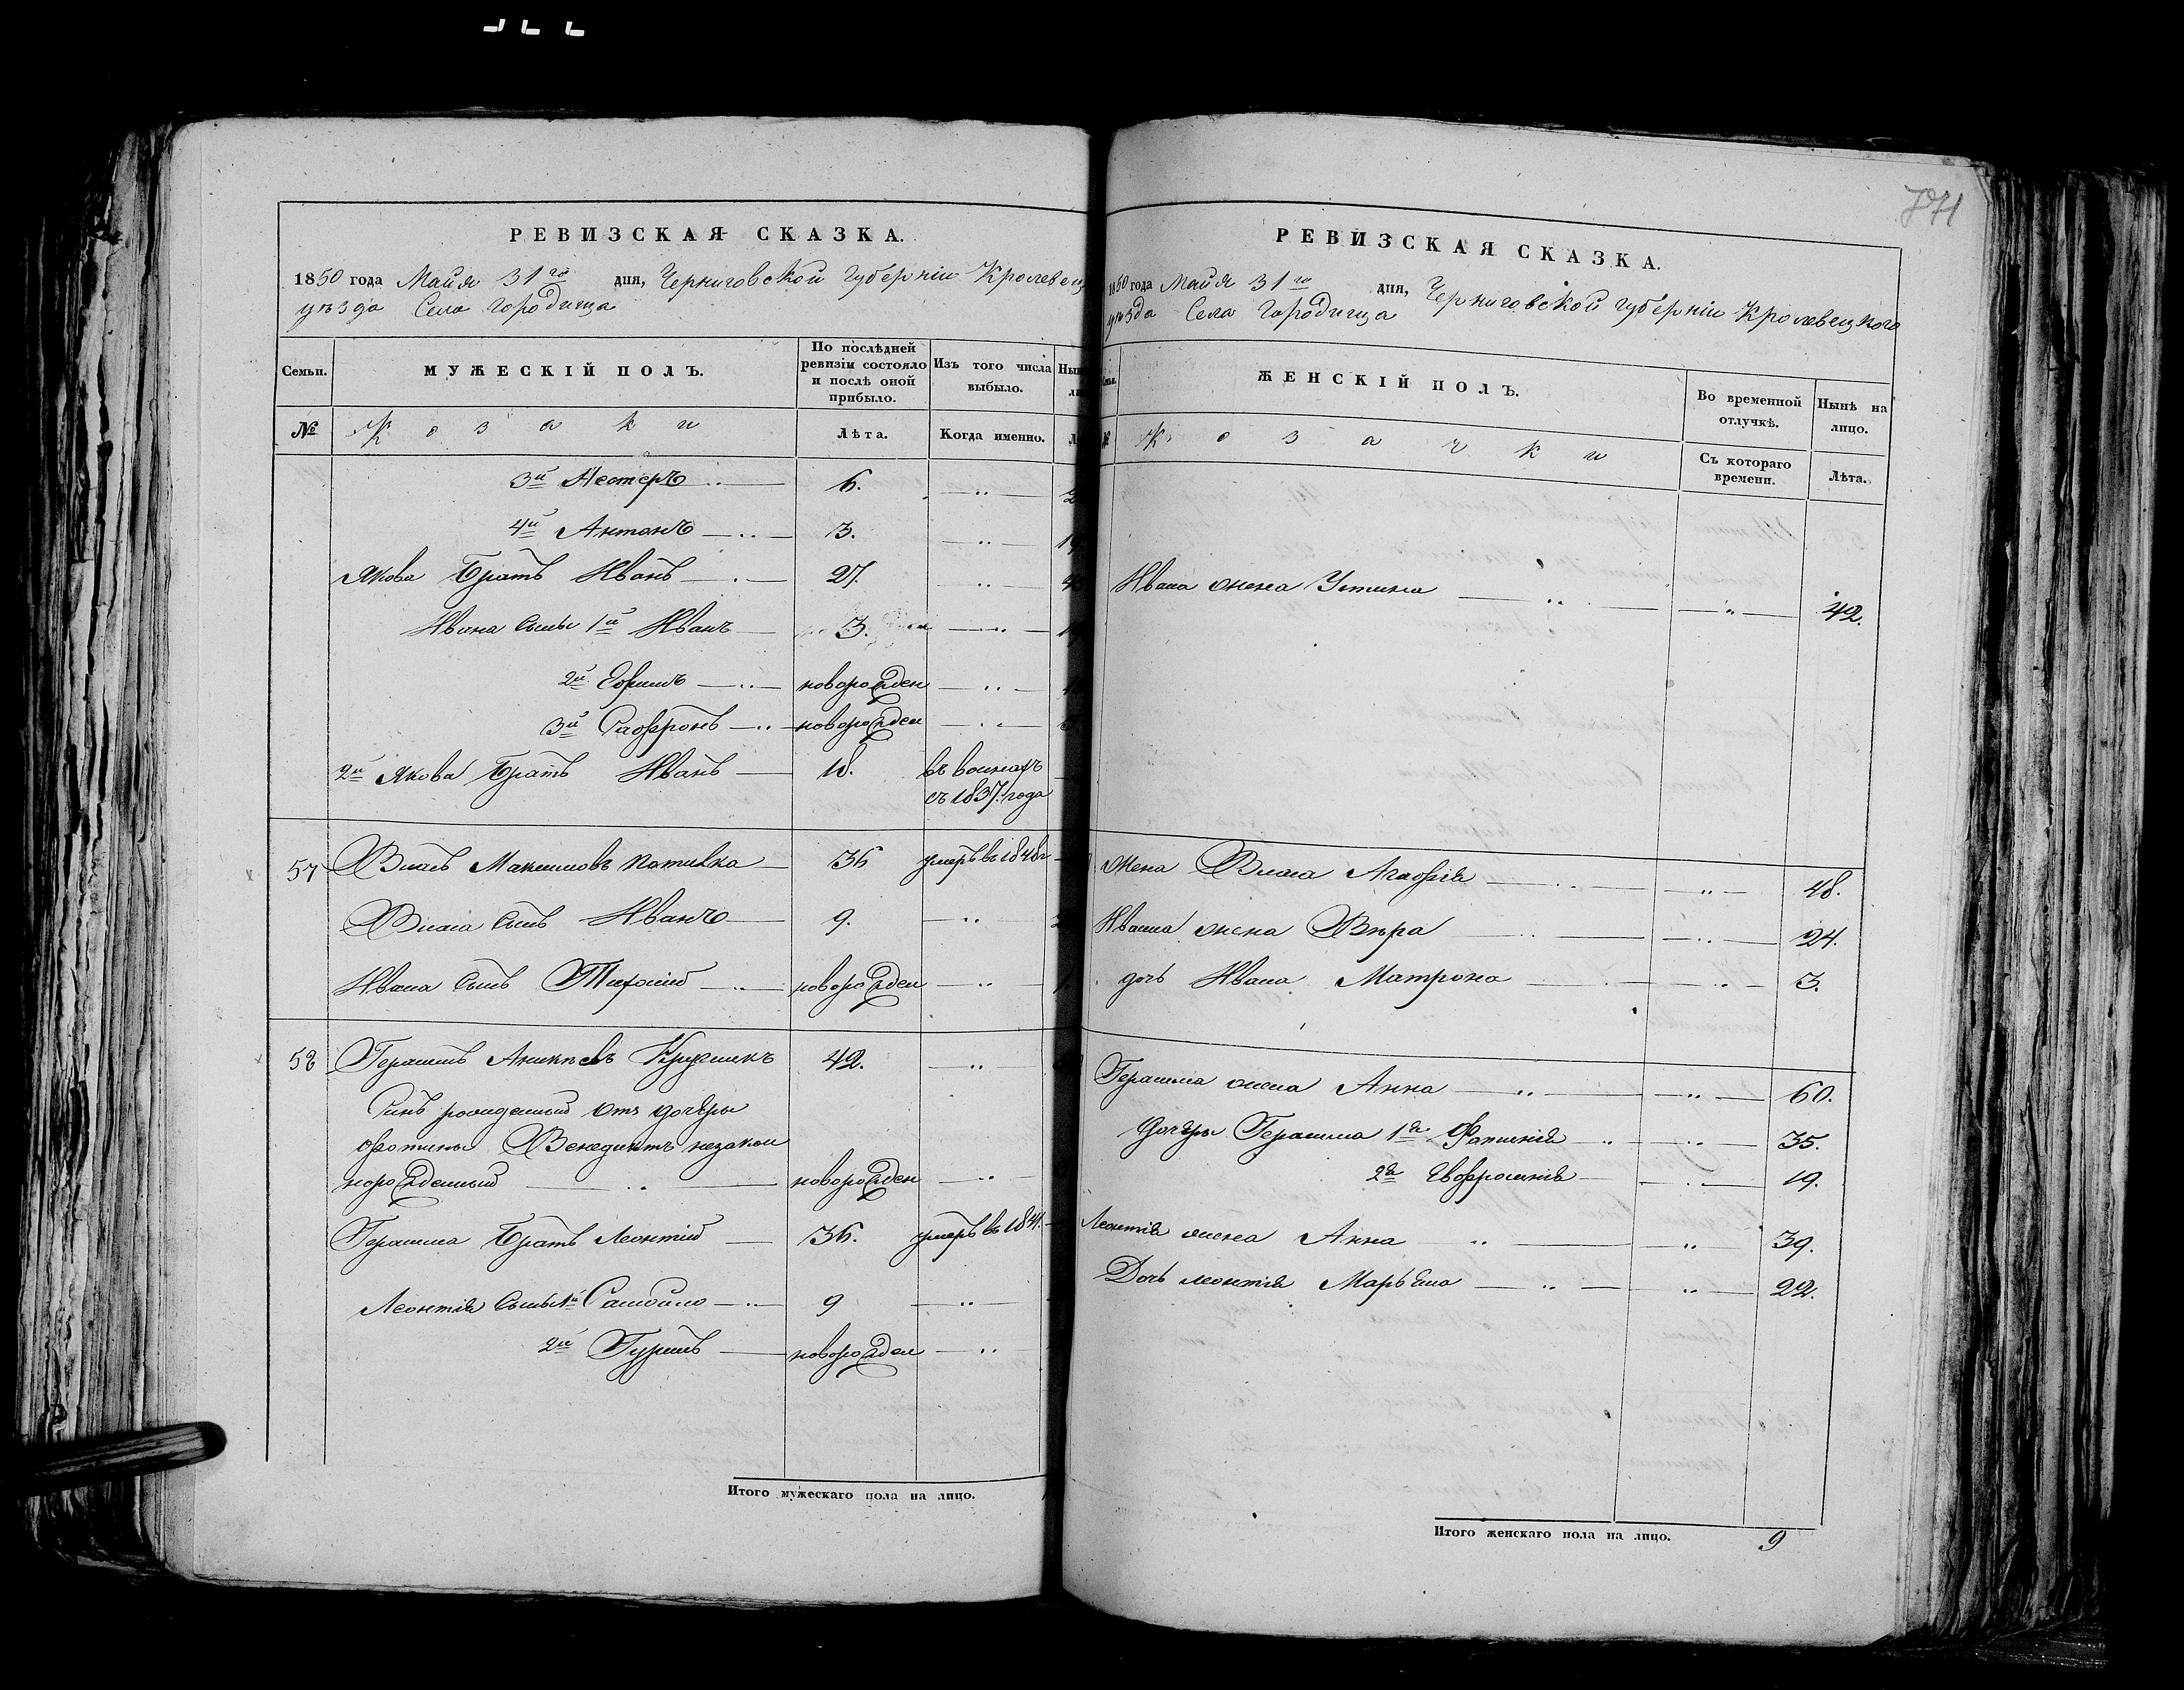 РЕВИЗСКАЯ СКАЗКА.
1850 года Майя 31го дня, Черниговской губерніи Кролевец
уѣзда Села Городища
Семьи.
МУЖЕСКІЙ ПОЛЪ.
По послѣдней ревизіи состояло и послѣ оной прибыло.
Изъ того числа выбыло.
№
Козаки
Лѣта.
Когда именно.
3й Нестеръ 6.
4й Антонъ 3.
Якова братъ Иванъ 27.
Ивана сыны 1й Иванъ 3.
2й Ефимъ новорожден
3й Сафронъ новорожден
2й Якова братъ Иванъ 18. въ воинахъ
съ 1837. года
57 Власъ Максимовъ 36 умеръ въ 1848 г
Власа сынъ Иванъ 9.
Ивана сынъ новорожден
58 Герасимъ 42.
Синъ рожденный отъ дочѣры
Фотины Венедиктъ незакон
норожденный новорожден
Герасима братъ Леонтій 36. умеръ въ 1841.
Леонтія сыны 1й Самойло 9
2й новорожден
Итого мужескаго пола на лицо.
771
РЕВИЗСКАЯ СКАЗКА.
1850 года Майя 31го дня, Черниговской губерніи Кролевецкого
уѣзда Села Городища
ЖЕНСКІЙ ПОЛЪ.
Во временной отлучкѣ.
Нынѣ на лицо.
№
Козачки
Съ котораго времени.
Лѣта.
Ивана жена Устина 42.
Жена Власа Агафія 48.
Ивана жена Вѣра 24.
дочъ Ивана Матрона 3.
Герасима жена Анна 60.
Дочѣры Герасима 1я Фатинія 35.
2я Евфросинія 19.
Леонтія жена Анна 39.
Дочъ Леонтія Марьяна 22.
Итого женскаго пола на лицо. 9